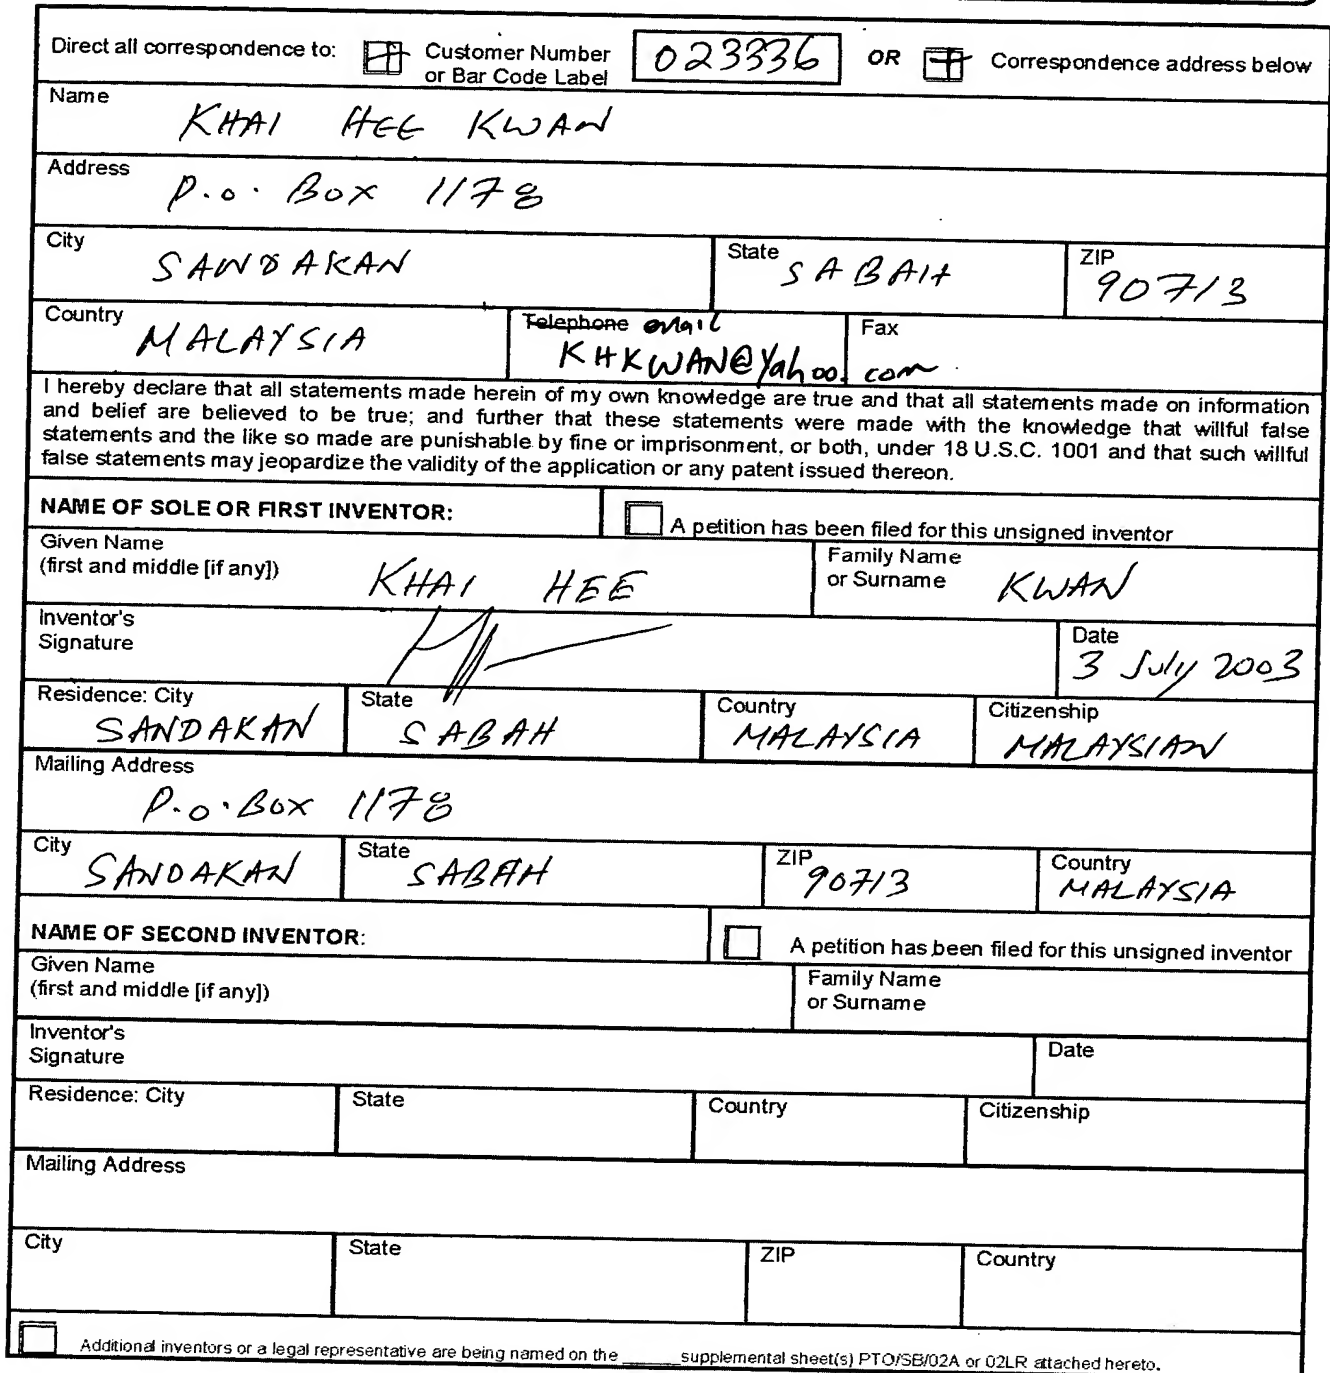 Direct all correspondence to: Customer Number or Bar Code Label 023336 OR Correspondence address below
Name
KHAI HEE KWAN
Address
P.O. Box 1178
City SANDAKAN State SABAH ZIP 90713
Country MALAYSIA Telephone email KHKWAN@Yahoo.com Fax
I hereby declare that all statements made herein of my own knowledge are true and that all statements made on information
and belief are believed to be true; and further that these statements were made with the knowledge that willful false
statements and the like so made are punishable by fine or imprisonment, or both, under 18 U.S.C. 1001 and that such willful
false statements may jeopardize the validity of the application or any patent issued thereon.
NAME OF SOLE OR FIRST INVENTOR: A petition has been filed for this unsigned inventor
Given Name
(first and middle [if any]) KHAI HEE Family Name or Surname KWAN
Inventor's
Signature Date 3 July 2003
Residence: City SANDAKAN State SABAH Country MALAYSIA Citizenship MALAYSIAN
Mailing Address
P.O. Box 1178
City SANDAKAN State SABAH ZIP 90713 Country MALAYSIA
NAME OF SECOND INVENTOR: A petition has been filed for this unsigned inventor
Given Name
(first and middle [if any]) Family Name or Surname
Inventor's
Signature Date
Residence: City State Country Citizenship
Mailing Address
City State ZIP Country
Additional inventors or a legal representative are being named on the _____ supplemental sheet(s) PTO/SB/02A or 02LR attached hereto.